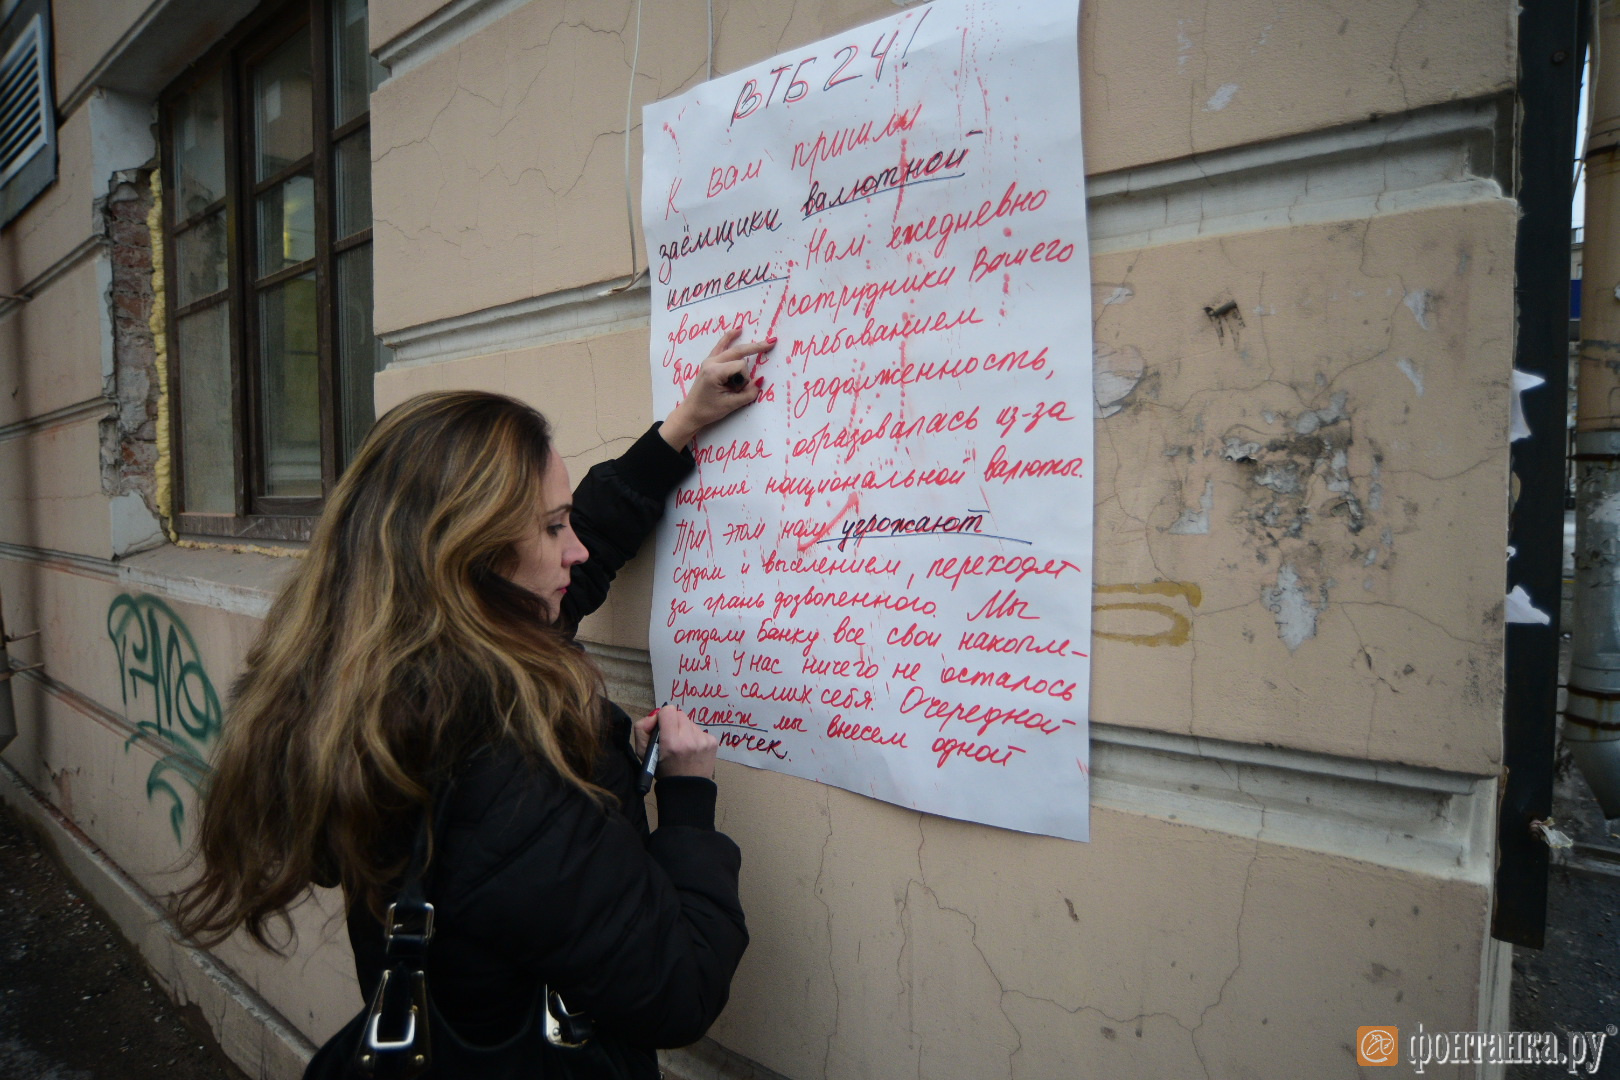 ВТБ 24!
К вам пришли
заёмщики валютной
ипотеки. Нам ежедневно
звонят сотрудники Вашего
требованием
задолженность,
образовалась из-за
падения национальной валюты.
При этом нам угрожают
судом и выселением, переходят
за грань дозволенного. Мы
отдали Банку все свои накопле-
ния. У нас ничего не осталось
кроме самих себя. Очередной
платёж мы внесем одной
почек.
фонтанка.ру